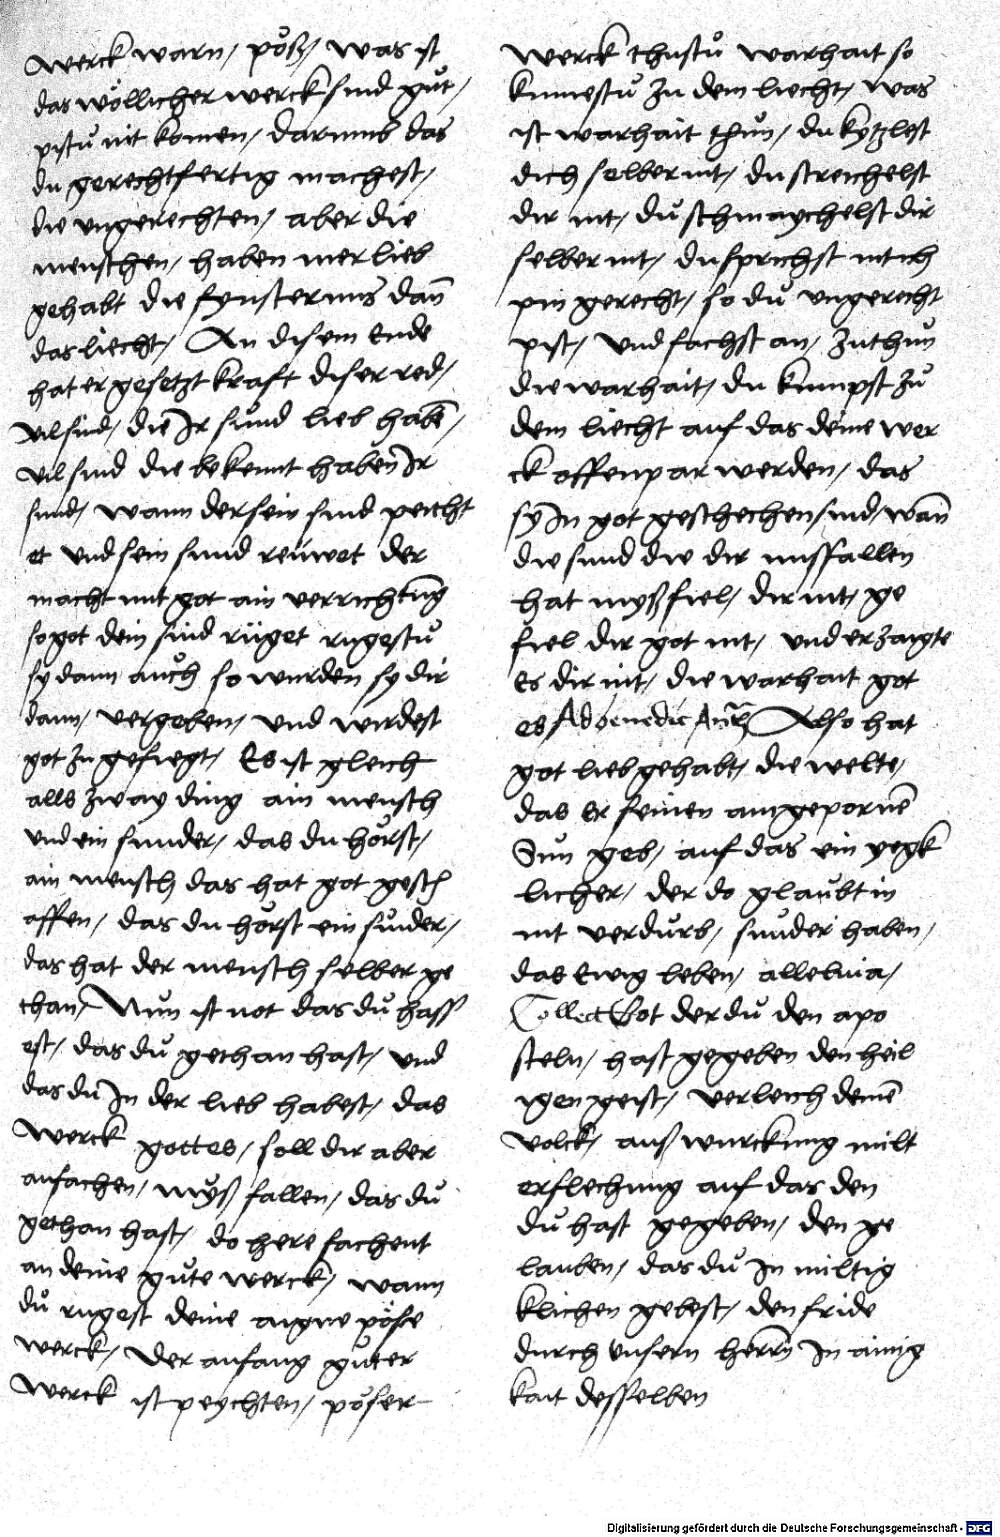 werck warn / pöß / was ist
das wöllicher werck sind gůt /
pistu nit komen / darumb das
du gerechtfertig machest /
die ungerechten / aber die
menschen / haben mer lieb
gehabt die fynsternus dañ
das liecht / An disem Ende
hat er gesetzt kraft diser red /
vil sind / die Ir sund lieb habē /
vil sind die bekennt haben Ir
sund / wann der sein sund peicht
et und sein sund reüwet der
macht mit got ain verrichtung
so got dein sünd rüget rugestu
sy dann auch so wurden sy dir
dann / vergeben / und wirdest
got zu gefuegt / Es ist gleich
alls zway ding ain mensch
und ein sunder / das du hörst /
ain mensch das hat got gesch
affen / das du hörst ein sunder /
das hat der mensch selber ge
than / Nun ist not das dů hass
est / das dů gethan hast / und
das dů In der lieb habest / das
werck gottes / soll dir aber
anfachen / myß fallen / das dů
gethan hast / do here fachent
an deine gůte werck / wann
dů rugest deine aigne pöse
werck / Der anfang gůter
werck ist peychten / pöser
werck thustů warhait so
kumestů zu dem liecht / was
ist warhait thun / du kytzlest
dich selber nit / du streichelst
dir nit / dů schmaychelst dir
selber nit / du sprichst nit ich
pin gerecht / so dů ungerecht
pist / und fachst an / zuthun
die warhait / du kumpst zů
dem liecht auf das deine wer
ck offenpar werden / das
sy In got geschechen sind / wañ
die sund die dir missfallen
hat myßfiel / dir nit / ge
fiel dir got nit / und erzaigte
Es dir nit / die warhait got
es Ad benedic Anꝛ Also hat
got lieb gehabt / die welte /
das Er seinen aingepornē
Sun geb / auf das ein yegk
licher / der do glaubt in
nit verdurb / sunder haben /
das Ewig leben / alleluia /
Collect Got der dů den apo
steln / hast gegeben den heil
igen geist / verleich deinē
volck / auß wurckung milt
erflechung auf das den
dů hast gegeben / den ge
lauben / das dů In miltig
klichen gebest / den fride
durch Unsern herrn In ainig
kait desselben
Digitalisierung gefördert durch die Deutsche Forschungsgemeinschaft - DFG